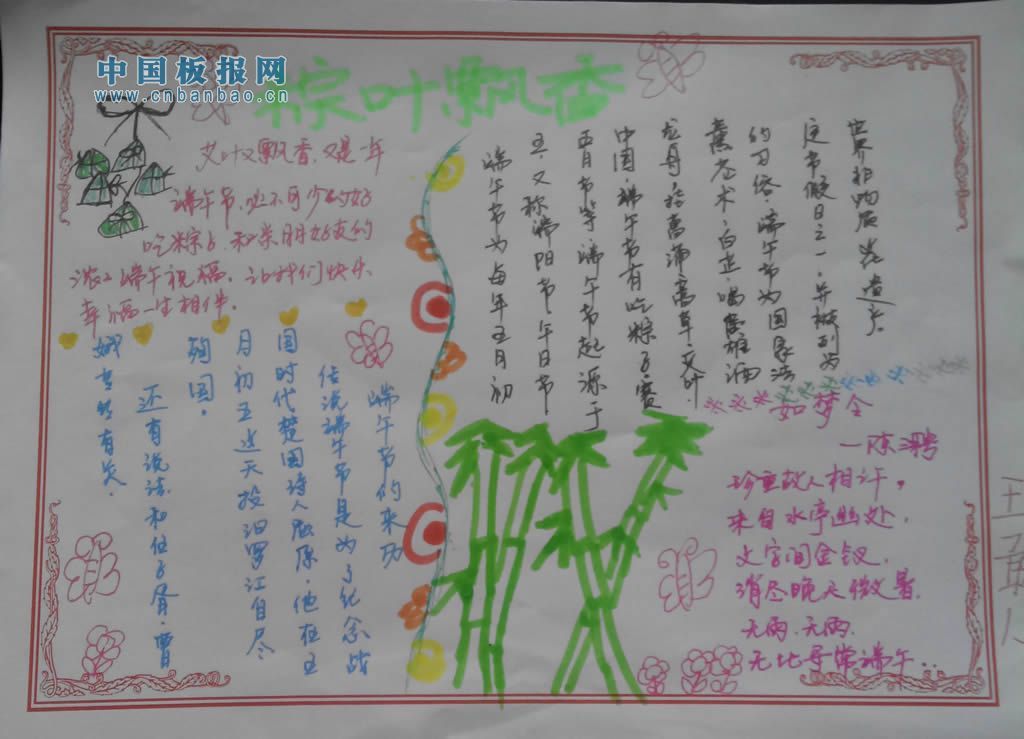 中国板报网
www.cnbanbao.cn
棕叶飘香
艾叶又飘香,又是一年
端午节,必不可少的好
吃粽子,和亲朋好友的
浓浓端午祝福,让我们快乐
幸福一生相伴。
端午节为每年五月初
五,又称端阳节、午日节、
五月节等。端午节起源于
中国,端午节有吃粽子,赛
龙舟,挂菖蒲、蒿草、艾叶,
薰苍术、白芷,喝雄黄酒
的习俗。端午节为国家法
定节假日之一,并被列为
世界非物质
端午节的来历
传说端午节是为了纪念战
国时代楚国诗人屈原,他在五
月初五这天投汨罗江自尽
殉国。
还有说法和伍子胥、曹
娥等有关。
如梦令
—陈骋
珍重故人相许,
来自水亭幽处,
文字间金钗,
消尽晚天微暑,
无雨,无雨,
无比寻常端午..